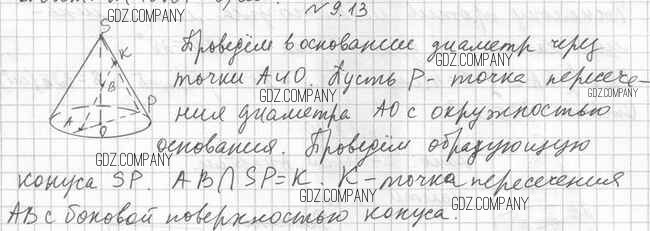 №9.13
Проведём в основании диаметр через
точки А и О. Пусть Р - точка пересече-
ния диаметра АО с окружностью
основания. Проведём образующую
конуса SP. AB∩SP=K. К-точка пересечения
АВ с боковой поверхностью конуса.
S
K
B
A
P
O
GDZ.COMPANY
GDZ.COMPANY
GDZ.COMPANY
GDZ.COMPANY
GDZ.COMPANY
GDZ.COMPANY
GDZ.COMPANY
GDZ.COMPANY
GDZ.COMPANY